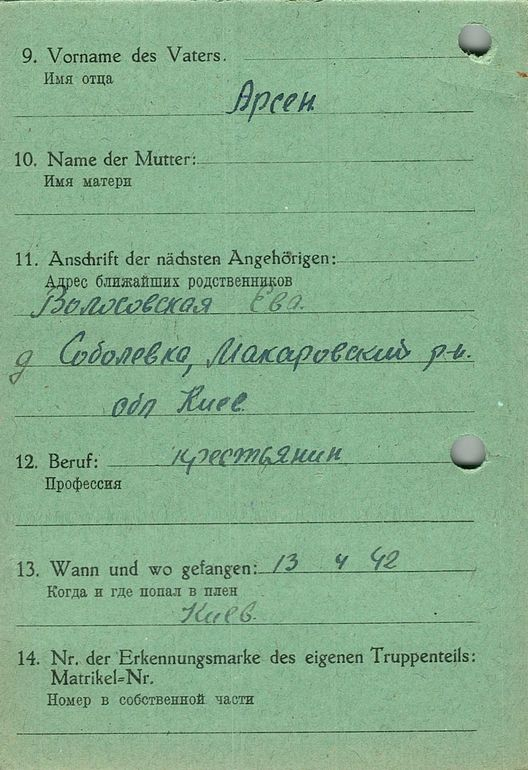 9. Vorname des Vaters.
Имя отца
Арсен
10. Name der Mutter:
Имя матери
11. Anschrift der nächsten Angehörigen:
Адрес ближайших родственников
Волосовская Ева.
д Соболевка, Макаровский р-н.
обл Киев
12. Beruf: крестьянин
Профессия
13. Wann und wo gefangen: 13 4 42
Когда и где попал в плен
Киев.
14. Nr. der Erkennungsmarke des eigenen Truppenteils:
Matrikel=Nr.
Номер в собственной части